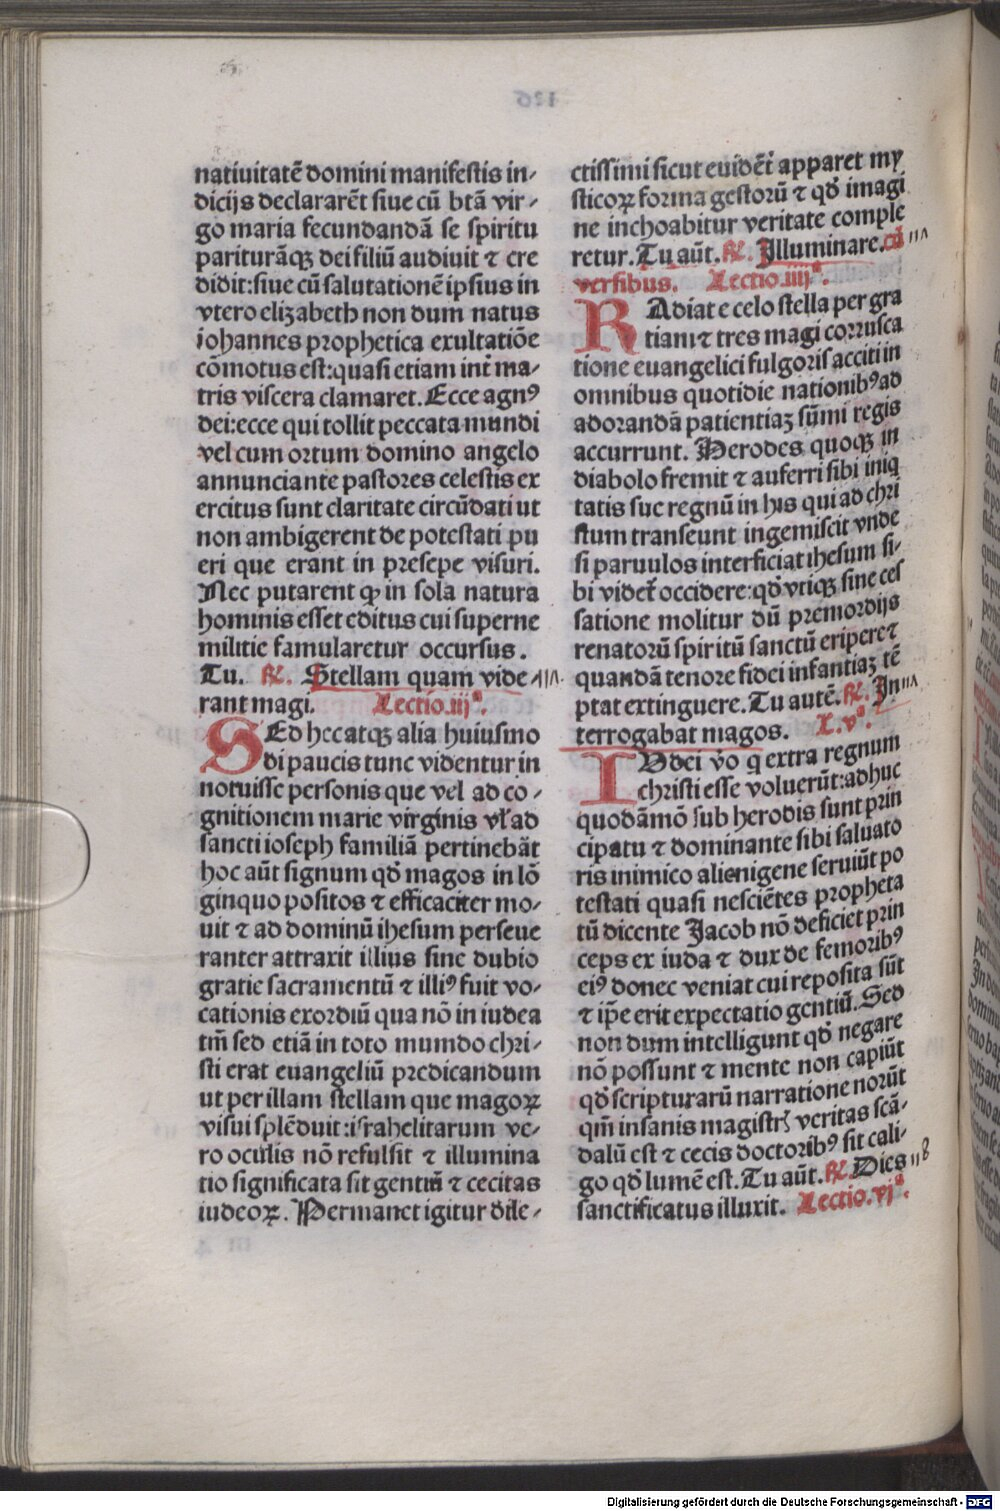 natiuitatē domini manifestis in-
dicijs declararēt siue cū btā vir-
go maria fecundandā se spiritu
parituramq; dei filiū audiuit ⁊ cre
didit: siue cū salutationē ipsius in
vtero elizabeth non dum natus
iohannes prophetica exultatiōe
cōmotus est: quasi etiam int̄ ma-
tris viscera clamaret. Ecce agnꝰ
dei: ecce qui tollit peccata mundi
vel cum ortum domino angelo
annunciante pastores celestis ex
ercitus sunt claritate circūdati ut
non ambigerent de potestati pu
eri que erant in presepe visuri.
Nec putarent ꝙ in sola natura
hominis esset editus cui superne
militie famularetur occursus.
Tu. ℟. Stellam quam vide
rant magi. Lectio.iijᵃ.
SEd hec atq; alia huiusmo
di paucis tunc videntur in
notuisse personis que vel ad co-
gnitionem marie virginis vł ad
sancti ioseph familiā pertinebāt
hoc aūt signum qđ magos in lō
ginquo positos ⁊ efficaciter mo-
uit ⁊ ad dominū ihesum perseue
ranter attraxit illius sine dubio
gratie sacramentū ⁊ illiꝰ fuit vo-
cationis exordiū qua nō in iudea
tm̄ sed etiā in toto mundo chri-
sti erat euangeliū predicandum
ut per illam stellam que magoꝝ
visui splēduit: israhelitarum ve-
ro oculis nō refulsit ⁊ illumina
tio significata sit gentiū ⁊ cecitas
iudeoꝝ. Permanet igitur dile-
ctissimi sicut euidēt̄ apparet my
sticoꝝ forma gestorū ⁊ qđ imagi
ne inchoabitur veritate comple
retur. Tu aūt. ℟. Illuminare. cū
versibus. Lectio.iiijᵃ.
RAdiat e celo stella per gra
tiam ⁊ tres magi corrusca
tione euangelici fulgoris acciti in
omnibus quotidie nationibꝰ ad
adorandā patientiaȝ sūmi regis
accurrunt. Herodes quoq; in
diabolo fremit ⁊ auferri sibi iniq
tatis sue regnū in his qui ad chri
stum transeunt ingemiscit vnde
si paruulos interficiat ihesum si-
bi videt̄ occidere: qđ vtiq; sine ces
satione molitur dū premordijs
renatorū spiritū sanctū eripere ⁊
quandā tenore fidei infantiaȝ tē
ptat extinguere. Tu autē. ℟. In
terrogabat magos. L.vᵃ.
IVdei vo q̄ extra regnum
christi esse voluerūt: adhuc
quodāmō sub herodis sunt prin
cipatu ⁊ dominante sibi saluato
ris inimico alienigene seruiūt po
testati quasi nesciētes propheta
tū dicente Jacob nō deficiet prin
ceps ex iuda ⁊ dux de femoribꝰ
eiꝰ donec veniat cui reposita sūt
⁊ ip̄e erit expectatio gentiū. Sed
non dum intelligunt qđ negare
nō possunt ⁊ mente non capiūt
qđ scripturarū narratione norūt
qm̄ insanis magistris veritas scā-
dalū est ⁊ cecis doctoribꝰ sit cali-
go qđ lumē est. Tu aūt. ℟. Dies
sanctificatus illuxit. Lectio.vjᵃ.
Digitalisierung gefördert durch die Deutsche Forschungsgemeinschaft - DFG